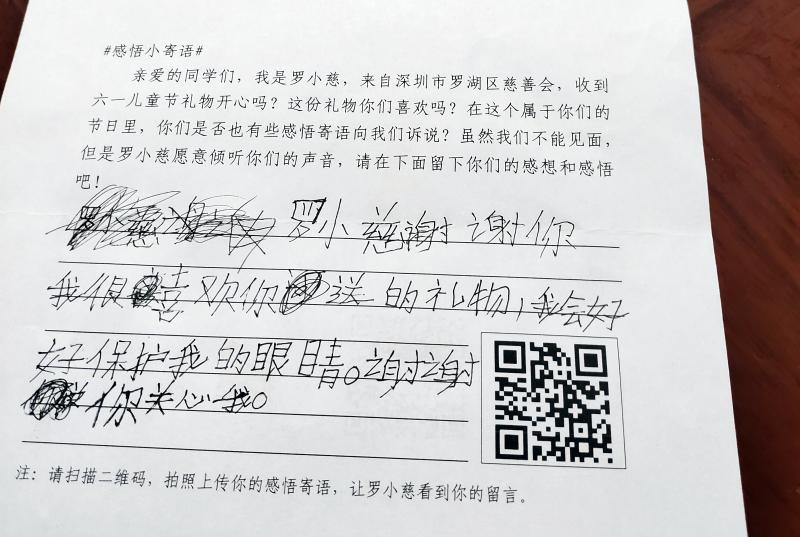 #感悟小寄语#
亲爱的同学们，我是罗小慈，来自深圳市罗湖区慈善会，收到
六一儿童节礼物开心吗？这份礼物你们喜欢吗？在这个属于你们的
节日里，你们是否也有些感悟寄语向我们诉说？虽然我们不能见面，
但是罗小慈愿意倾听你们的声音，请在下面留下你们的感想和感悟
吧！
罗小慈谢谢你
我很喜欢你送的礼物，我会好
好保护我的眼睛。谢谢
你关心我。
注：请扫描二维码，拍照上传你的感悟寄语，让罗小慈看到你的留言。